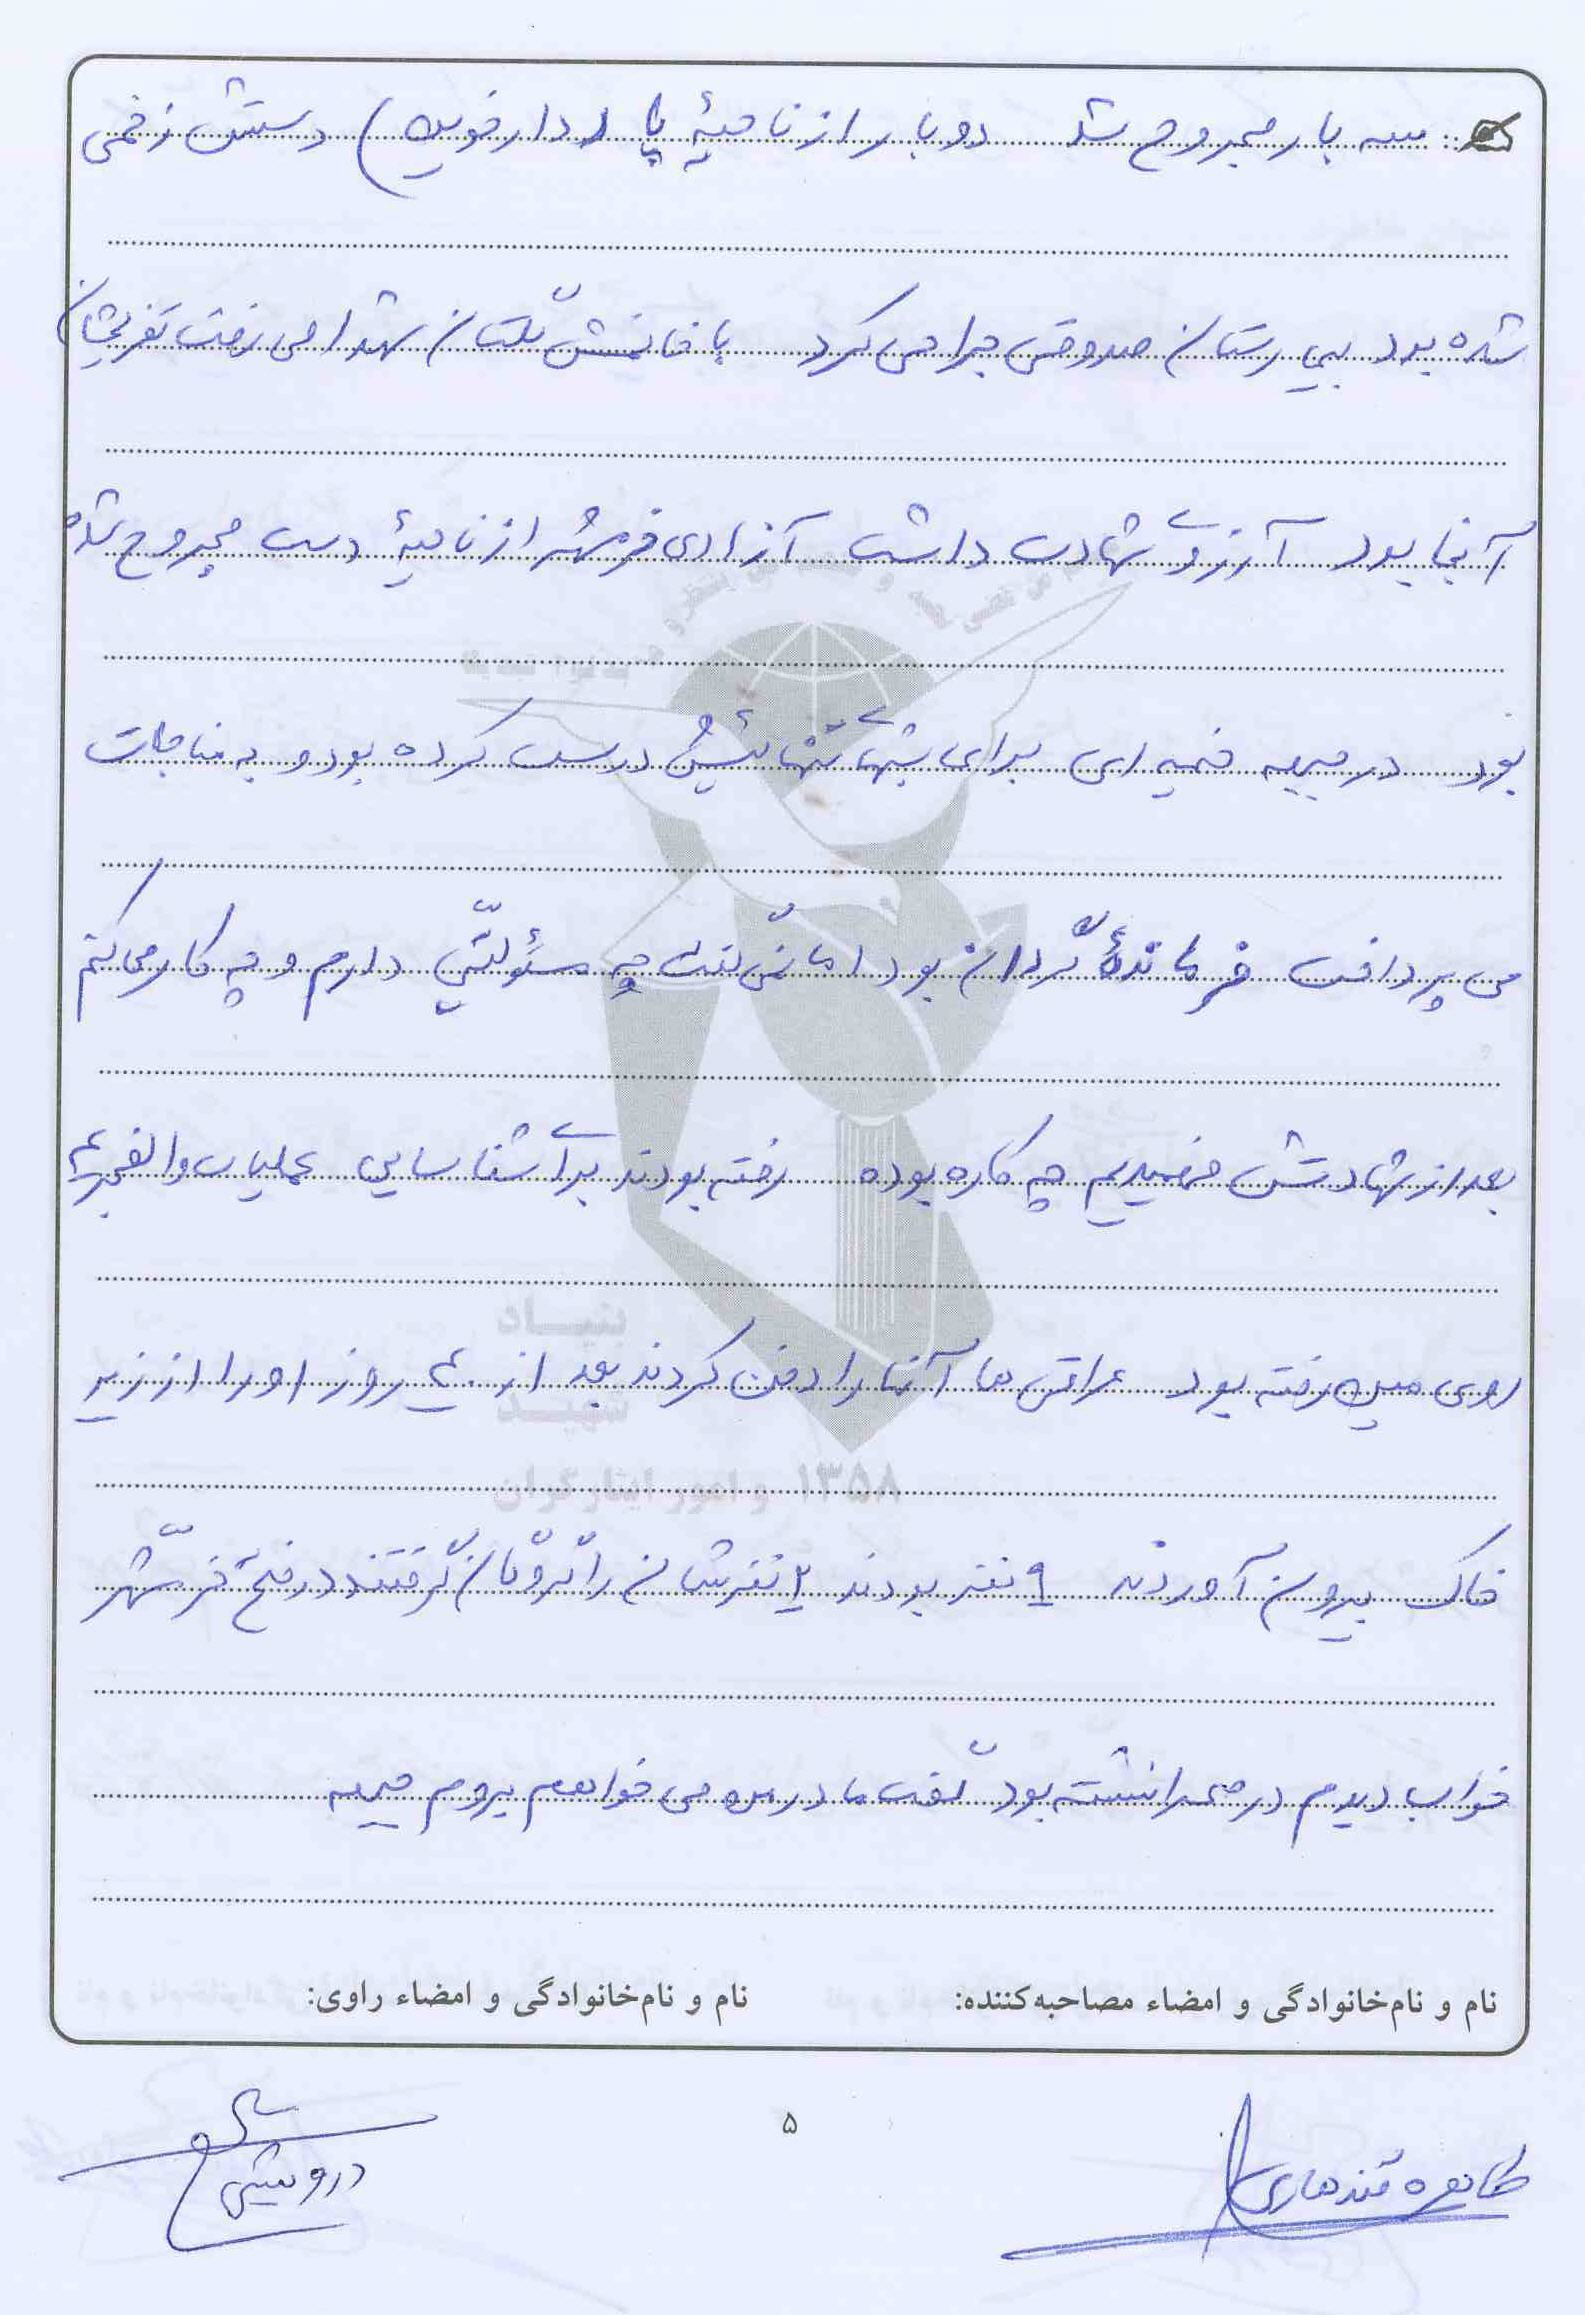 سه بار مجروح شد دو بار از ناحیهٔ پا (دارخوین) دستش زخمی
شده بود بیمارستان صدوقی جراحی کرد با خانمش گلستان شهدا می رفت تفریحشان
آنجا بود آرزوی شهادت داشت آزادی خرمشهر از ناحیهٔ دست مجروح شده
بود در جبهه خیمه ای برای شبهای تنهائیش درست کرده بود و به مناجات
می پرداخت فرماندهٔ گردان بود اما نمی گفت چه مسئولیتی دارم و چه کار می کنم
بعد از شهادتش فهمیدیم چه کاره بوده رفته بودند برای شناسایی عملیات والفجر ۴
روی مین رفته بود عراقی ها آنها را دفن کردند بعد از ۴۰ روز او را از زیر
خاک بیرون آوردند ۹ نفر بودند ۲ نفرشان را گروگان گرفتند در فتح خرمشهر
خواب دیدم در صحرا نشسته بود گفت مادر من می خواهم بروم جبهه
نام و نام‌خانوادگی و امضاء مصاحبه‌کننده: نام و نام‌خانوادگی و امضاء راوی:
طاهره قندهاری
درویشی
۵
بنیاد
شهید
۱۳۵۸ و امور ایثارگران